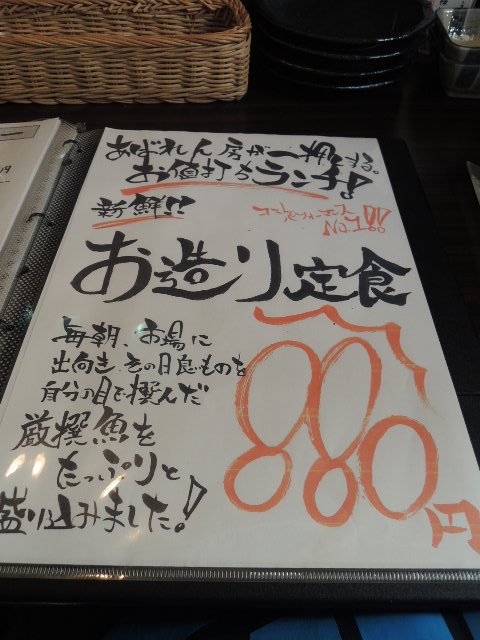 あばれん房が一押しする。
お値打ちランチ!
新鮮!!
No.1!!
お造り定食
毎朝、市場に
出向き、その日良いものを
自分の目で撰んだ
厳撰魚を
たっぷりと
盛り込みました!
880円
円